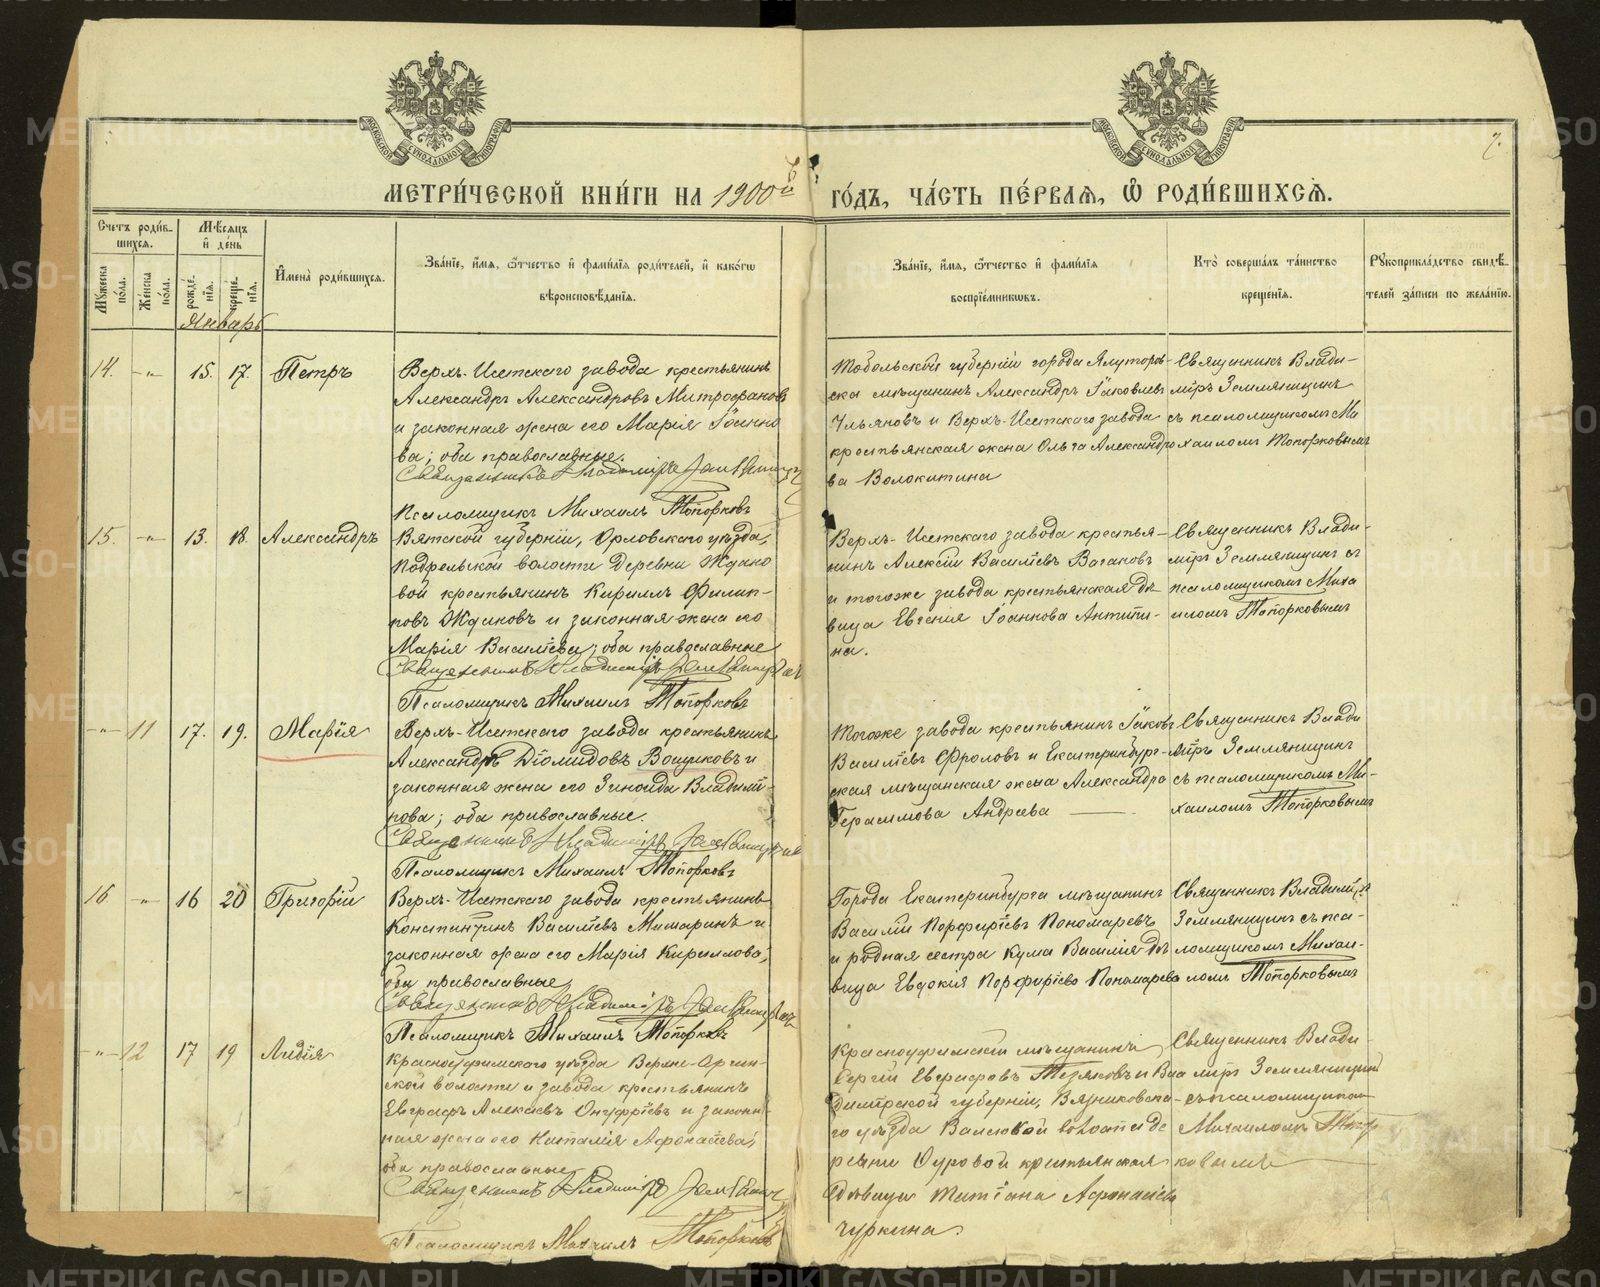 МЕТРИ́ЧЕСКОЙ КНИ́ГИ НА 1900й ГО́ДЪ, ЧА́СТЬ ПЕ́РВАѦ, Ѿ РОДИ́ВШИХСѦ.
Счетъ роди́в-
шихся.
Мѣ́сяцъ
и҆ де́нь
Мꙋ́жеска
по́ла.
Же́нска
по́ла.
рожде́-
нїѧ.
креще́-
нїѧ.
И҆мена̀ роди́вшихся.
Зва́нїе, и҆́мѧ, ѻ҆́тчество и҆ фами́лїѧ роди́телей, и҆ како́гѡ
вѣроисповѣ́данїѧ.
Зва́нїе, и҆́мѧ, ѻ҆́тчество и҆ фами́лїѧ
воспрїе́мникѡвъ.
Кто̀ соверша́лъ та́инство
креще́нїѧ.
Рꙋкоприкла́дство свидѣ́-
телей за́писи по жела́нїю.
Январь
14. -„- 15. 17. Петръ
Верхъ-Исетскаго завода крестьянинъ
Александръ Александровъ Митрофановъ
и законная жена его Марія Іоанно
ва; оба православные.
Священникъ Владиміръ Земляницынъ
Псаломщикъ Михаилъ Топорковъ
Тобольской губерніи города Ялуторов-
ска мѣщанинъ Александръ Іаковлевъ
Ульяновъ и Верхъ-Исетскаго завода
крестьянская жена Ольга Александро
ва Волокитина
Священникъ Влади-
міръ Земляницынъ
съ псаломщикомъ Ми
хаиломъ Топорковымъ
15. -„- 13. 18. Александръ
Вятской губерніи, Орловскаго уѣзда,
Подрельской волости деревни Ждано
вой крестьянинъ Кириллъ Филип-
повъ Ждановъ и законная жена его
Марія Василіева; оба православные
Священникъ Владиміръ Земляницынъ
Псаломщикъ Михаилъ Топорковъ
Верхъ-Исетскаго завода крестья-
нинъ Алексій Василіевъ Ваганов
и тогоже завода крестьянская дѣ-
вица Евгенія Іоаннова Антипи-
на.
Священникъ Влади-
міръ Земляницынъ съ
псаломщикомъ Миха
иломъ Топорковымъ
-„- 11 17. 19. Марія
Верхъ-Исетскаго завода крестьянинъ
Александръ Діомидовъ Вощиковъ и
законная жена его Зиноида Владимі-
рова; оба православные.
Священникъ Владиміръ Земляницынъ
Псаломщикъ Михаилъ Топорковъ
Тогоже завода крестьянинъ Іаковъ
Василіевъ Фроловъ и Екатеринбург-
ская мѣщанская жена Александра
Герасимова Андреева
Священникъ Влади
міръ Земляницынъ
съ псаломщикомъ Ми-
хаиломъ Топорковымъ
16 -„- 16 20 Григорій
Верхъ-Исетскаго завода крестьянинъ
Константинъ Василіевъ Мишаринъ и
законная жена его Марія Кириллова;
оба православные
Священникъ Владиміръ Земляницынъ
Псаломщикъ Михаилъ Топорковъ
Города Екатеринбурга мѣщанинъ
Василій Порфиріевъ Пономаревъ
и родная сестра кума Василія дѣ-
вица Евдокія Порфиріева Пономарева
Священникъ Владимі́ръ
Земляницынъ съ пса-
ломщикомъ Михаи-
ломъ Топорковымъ
-„- 12 17 19 Лидія
Красноуфимскаго уѣзда Верхне-Аргин-
ской волости и завода крестьянинъ
Евграфъ Алексѣевъ Онуфріевъ и закон-
ная жена его Наталія Афонасіева;
оба православные
Священникъ Владиміръ Земляницынъ
Псаломщикъ Михаилъ Топорковъ
Красноуфимскій мѣщанинъ
Сергій Евграфовъ Тезяковъ и Вла
димірской губерніи, Вязниковска-
го уѣзда волости де
ревни Суровой крестьянская
дѣвица Татіана Афонасіева
Чуркина.
Священникъ Влади-
міръ Земляницынъ
съ псаломщикомъ
Михаиломъ Топор
ковымъ